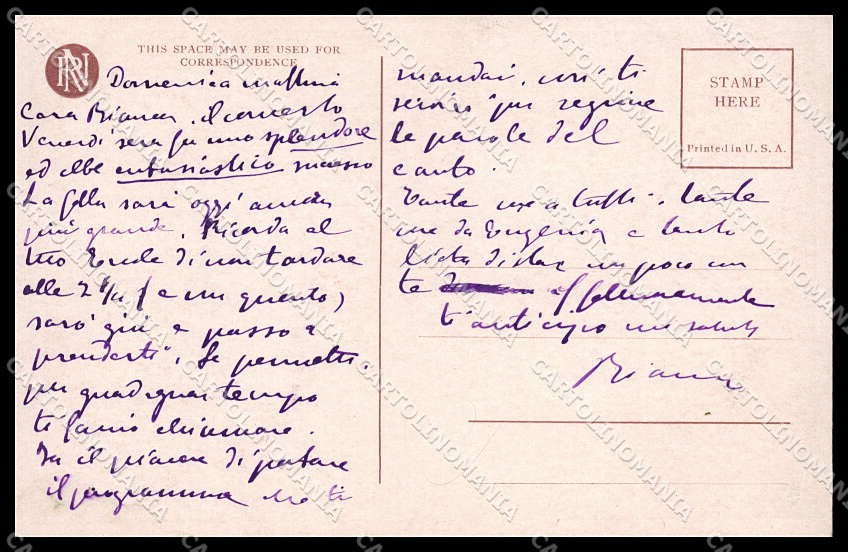 THIS SPACE MAY BE USED FOR
CORRESPONDENCE
Domenica mattina
Cara Bianca, il concerto
Venerdì sera fu uno splendore
ed ebbe entusiastico successo
La folla sarà oggi ancor
più grande. Ricorda al
tuo di non tardare
alle 2 e un quarto,
sarò giù e passo a
prenderti. Se permetti.
per guadagnar tempo
ti farò chiamare.
Fa il piacere di portare
il programma che ti
mandai, così ti
servirà per seguire
le parole del
canto.
Tante cose a tutti, tante
cose da Eugenia e tanto
lieta di star un poco con
te affettuosamente
t'anticipo un saluto
Bianca
STAMP
HERE
Printed in U. S. A.
CARTOLINOMANIA